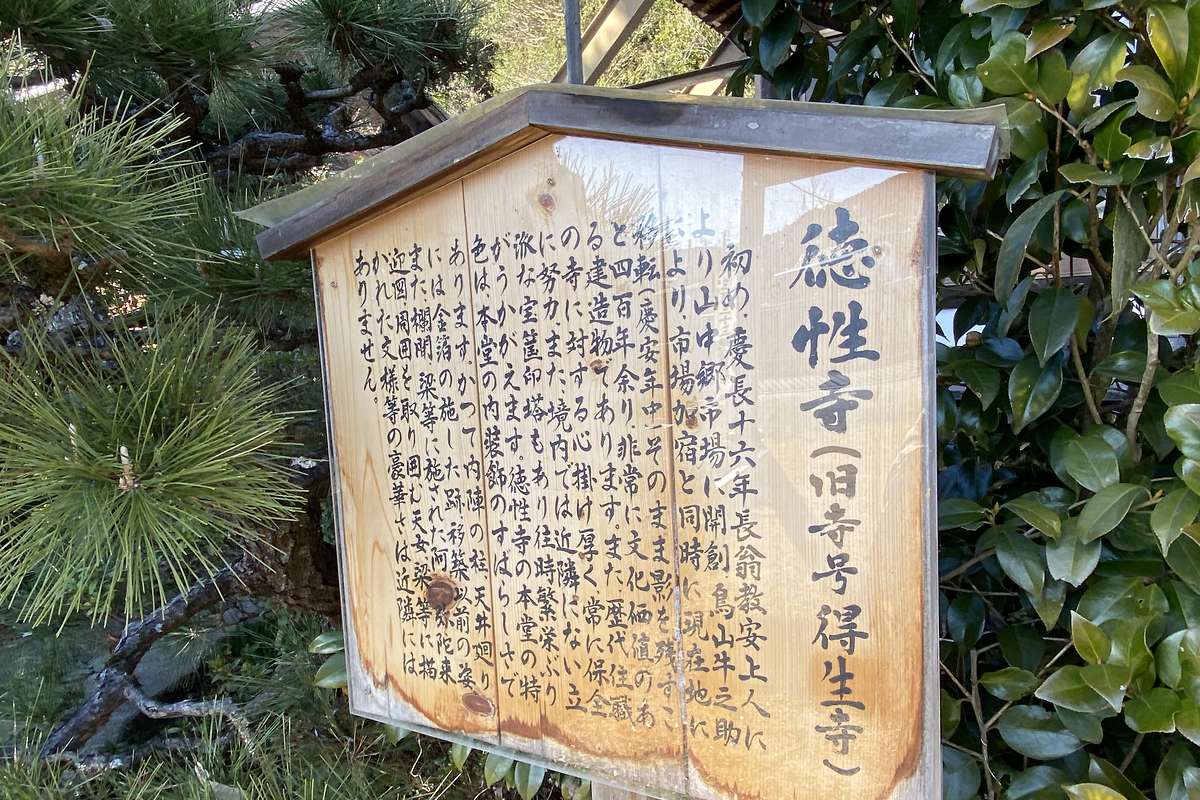 徳性寺(旧寺号得生寺)
初め、慶長十六年長翁教安上人に
より山中郷市場に開創 鳥山牛之助
により市場加宿と同時に現在地に
移転(慶安年中)そのまま影を残すこ
と四百年余り、非常に文化価値のあ
る建造物であります。また歴代住職
の寺に対する心掛け厚く常に保全
に努力また、境内では近隣にない立
派な宝篋印塔もあり往時繁栄ぶり
がうかがえます。徳性寺の本堂の特
色は本堂の内装飾のすばらしさで
あります。かつて内陣の柱 天井廻り
には金箔の施した跡 移築以前の姿
また欄間 梁等に施された阿弥陀来
迎図周囲を取り囲む天女梁等に描
かれた文様等の豪華さは近隣には
ありません。